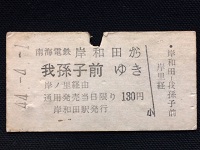 44.-4.-1
南海電鉄 岸和田から
我孫子前 ゆき
岸ノ里経由
通用発売当日限り 130円
岸和田駅発行
小
岸和田→我孫子前
岸里経